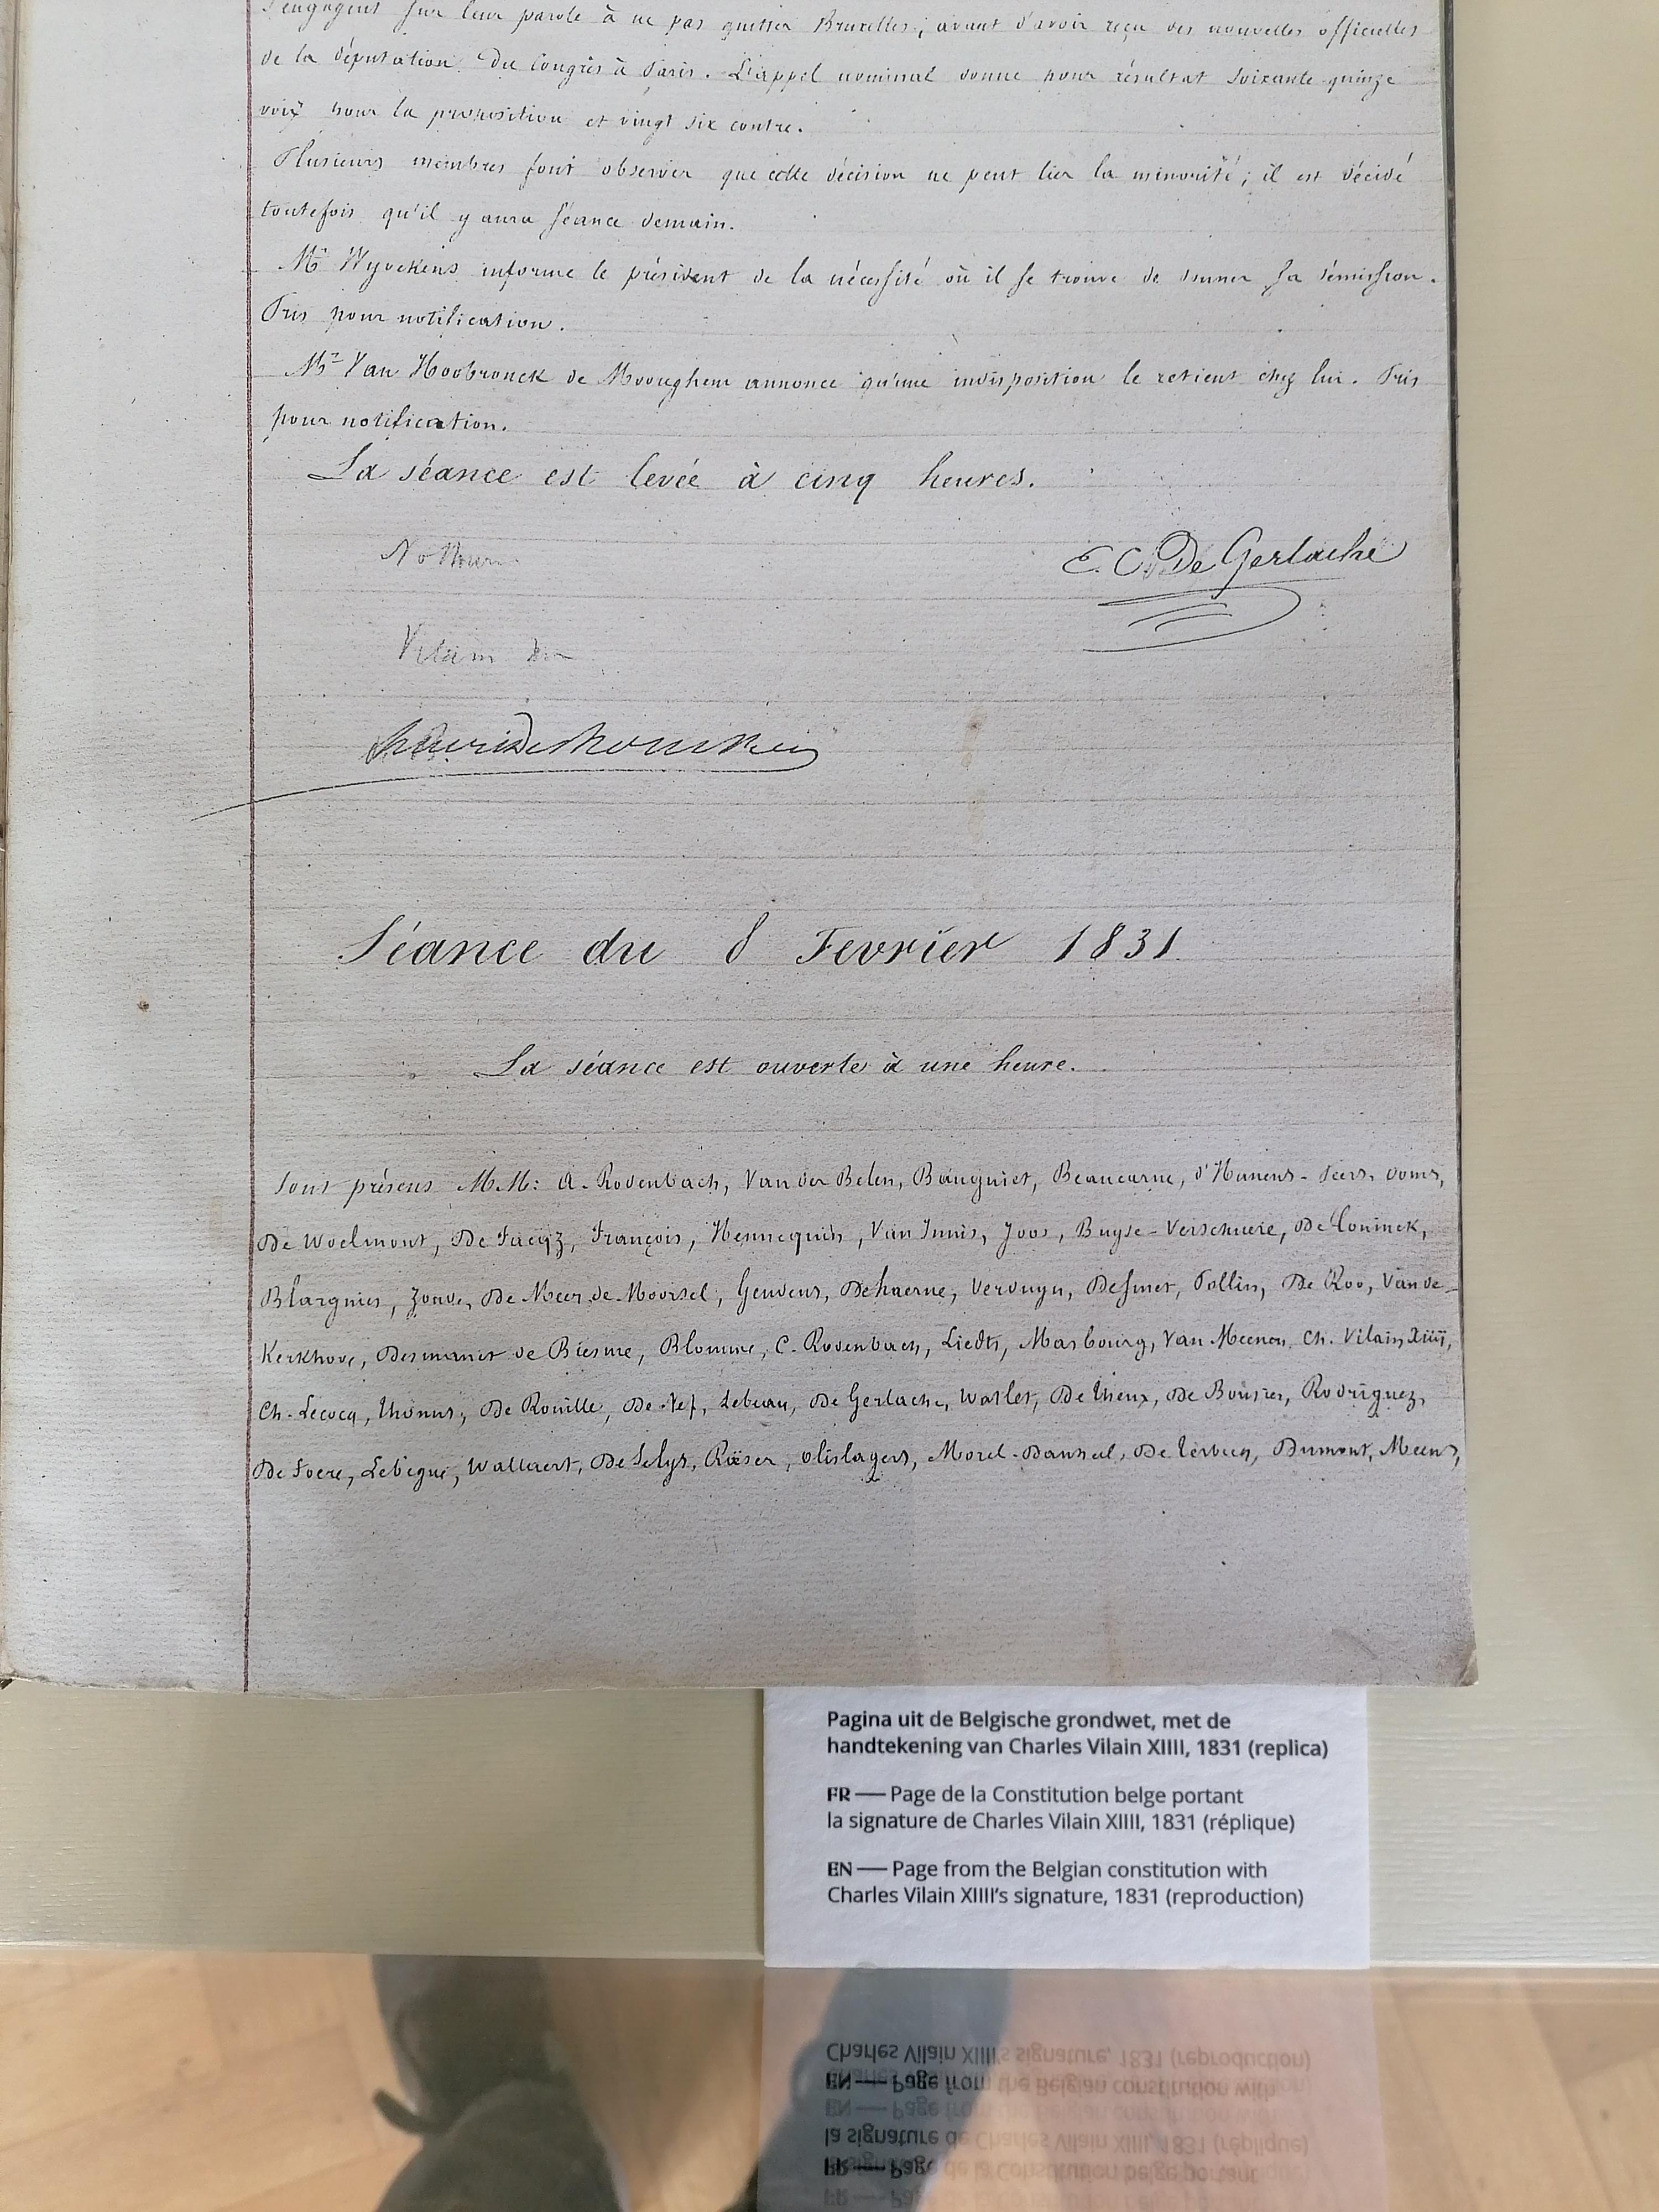 s'engagent sur leur parole à ne pas quitter Bruxelles; avant d'avoir reçu des nouvelles officielles
de la députation du Congrès à Paris. L'appel nominal donne pour résultat soixante quinze
voix pour la proposition et vingt six contre.
Plusieurs membres font observer que cette décision ne peut lier la minorité; il est décidé
toutefois qu'il y aura séance demain.
Mr Wyvekens informe le président de la nécessité où il se trouve de donner sa démission.
Pris pour notification.
Mr Van Hoobrouck de Mooreghem annonce qu'une indisposition le retient chez lui. Pris
pour notification.
La séance est levée à cinq heures.
Nothomb
E. C. De Gerlache
Vilain
Séance du 8 Fevrier 1831
La séance est ouverte à une heure.
Sont présens M.M: A. Rodenbach, Van der Belen, Baugniet, Beaucarne, d'Hanens-Peers, Domis,
De Woelmont, De Facqz, François, Hennequin, Van Innis, Joos, Buyse-Verschuere, De Coninck,
Blargnies, Zoude, De Meer de Moorsel, Geudens, Dehaerne, Verduyn, Desmet, Pollin, De Roo, Van de
Kerkhove, Desmanet de Biesme, Blomme, C. Rodenbach, Liedts, Masbourg, Van Meenen, Ch. Vilain XIIII,
Ch. Lecocq, Thonus, De Rouille, De Nef, Lebeau, De Gerlache, Watlet, De Theux, De Bousies, Rodriguez,
De Foere, Lebegue, Wallaert, De Selys, Raeser, Olislagers, Morel-Danheel, De Terbecq, Dumont, Meeus,
Pagina uit de Belgische grondwet, met de
handtekening van Charles Vilain XIIII, 1831 (replica)
FR — Page de la Constitution belge portant
la signature de Charles Vilain XIIII, 1831 (réplique)
EN — Page from the Belgian constitution with
Charles Vilain XIIII's signature, 1831 (reproduction)